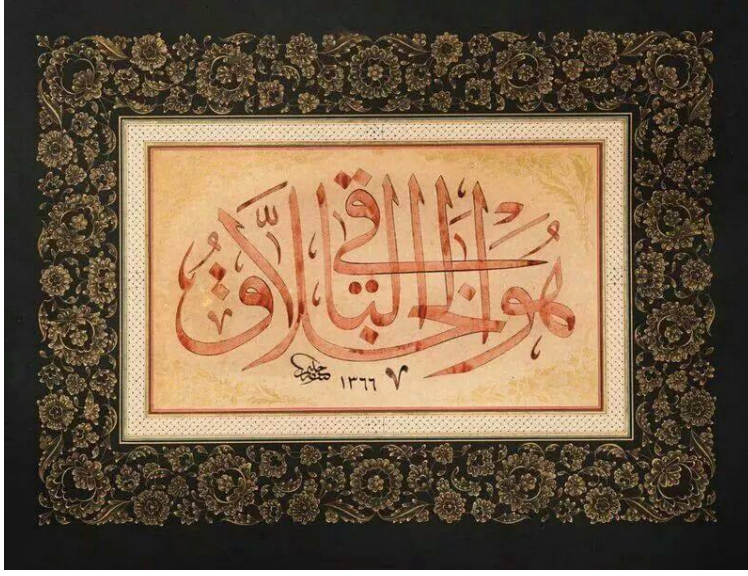 هُوَ الْخَلَّاقُ الْبَاقِي
٧ ١٣٦٦